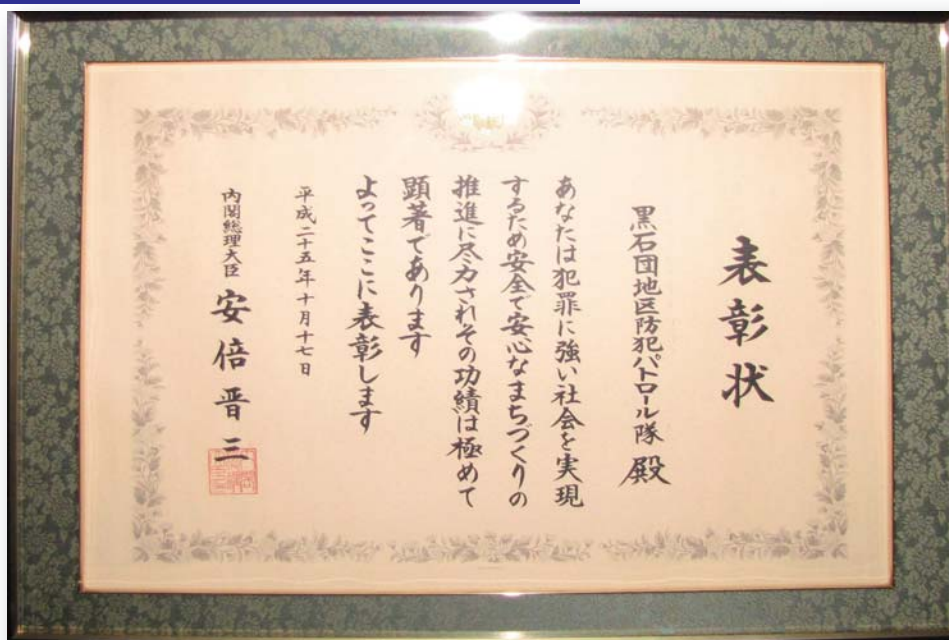 表彰状
黒石団地区防犯パトロール隊 殿
あなたは犯罪に強い社会を実現
するため安全で安心なまちづくりの
推進に尽力されその功績は極めて
顕著であります
よってここに表彰します
平成二十五年十月十七日
内閣総理大臣 安倍晋三